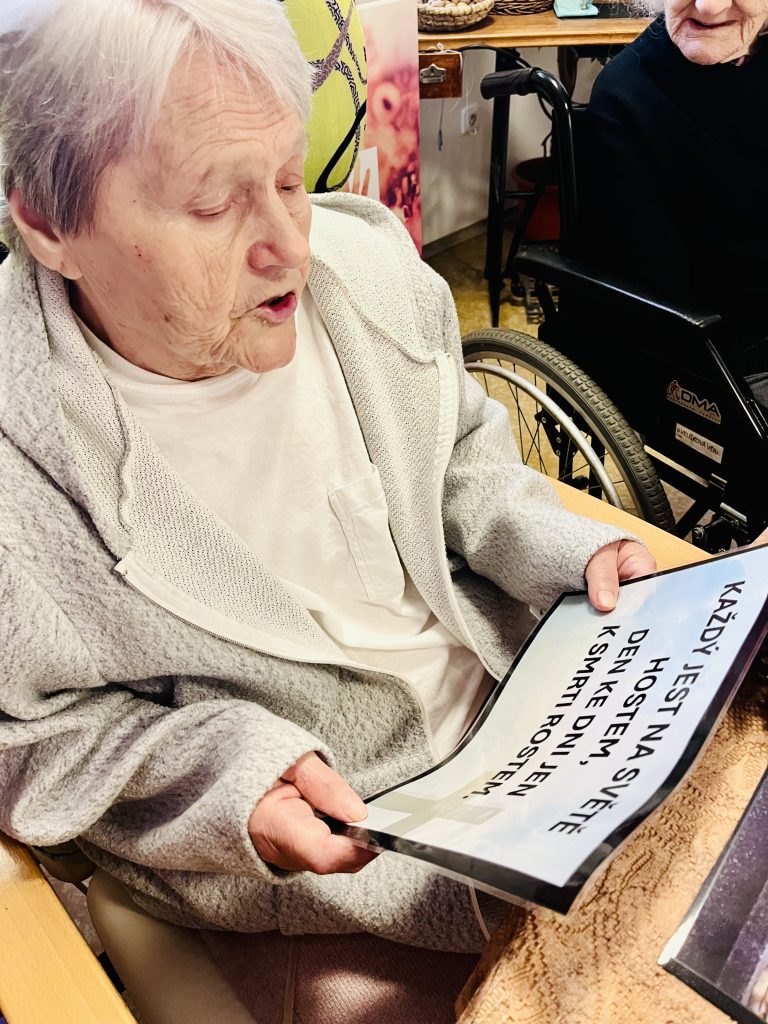 KAŽDÝ JEST NA SVĚTĚ
HOSTEM,
DEN KE DNI JEN
K SMRTI ROSTEM.
DMA